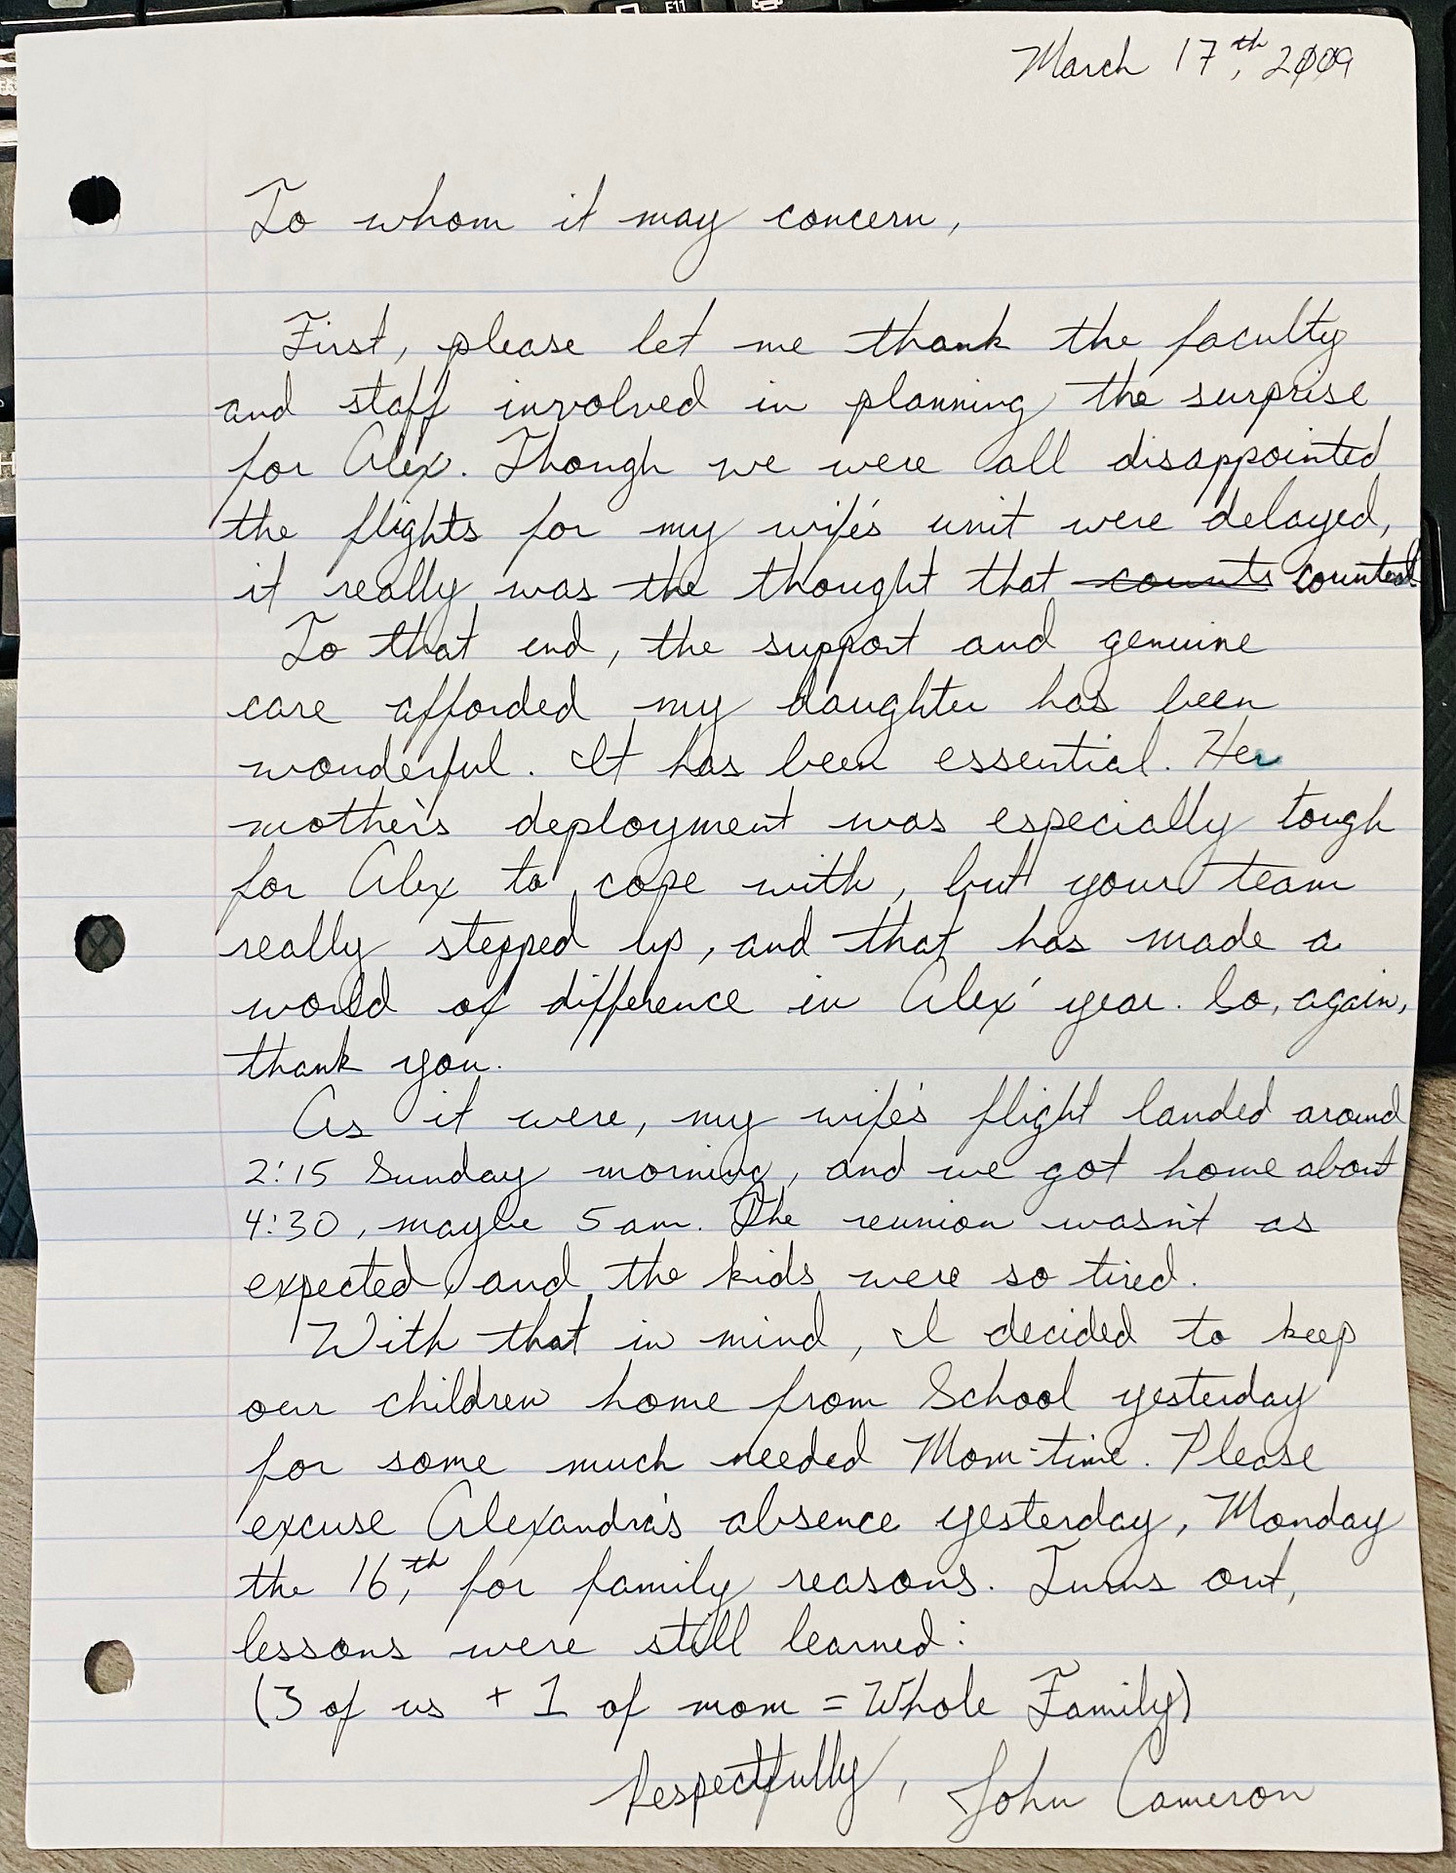 F11
March 17th, 2009
To whom it may concern,
First, please let me thank the faculty
and staff involved in planning the surprise
for Alex. Though we were all disappointed
the flights for my wife's unit were delayed,
it really was the thought that counts counted
To that end, the support and genuine
care afforded my daughter has been
wonderful. It has been essential. Her
mother's deployment was especially tough
for Alex to cope with, but your team
really stepped up, and that has made a
world of difference in Alex' year. So, again,
thank you.
As it were, my wife's flight landed around
2:15 Sunday morning, and we got home about
4:30, maybe 5 am. The reunion wasn't as
expected and the kids were so tired.
With that in mind, I decided to keep
our children home from School yesterday
for some much needed Mom-time. Please
excuse Alexandra's absence yesterday, Monday
the 16th, for family reasons. Turns out,
lessons were still learned:
(3 of us + 1 of mom = Whole Family)
Respectfully, John Cameron